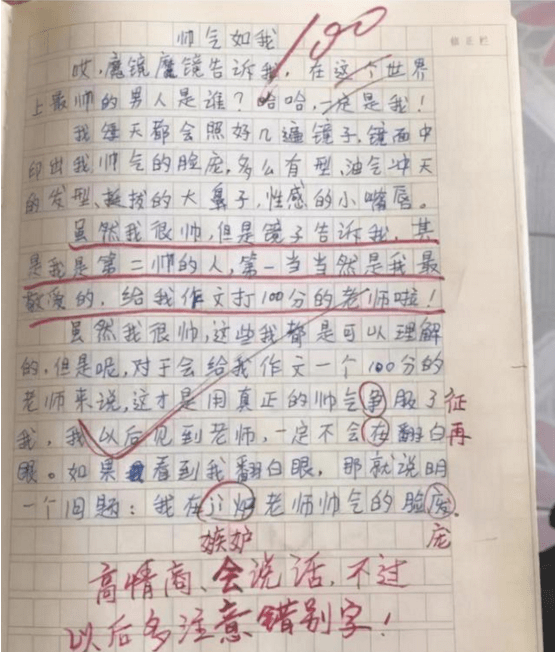 帅气如我
100
哎，魔镜魔镜告诉我，在这个世界
上最帅的男人是谁？哈哈，一定是我！
我每天都会照好几遍镜子，镜面中
印出我帅气的脸庞，多么有型，油气冲天
的发型、挺拔的大鼻子，性感的小嘴唇。
虽然我很帅，但是镜子告诉我，其
是我是第二帅的人，第一当当然是我最
敬爱的，给我作文打100分的老师啦！
虽然我很帅，这些我都是可以理解
的，但是呢，对于会给我作文一个100分的
老师来说，这才是用真正的帅气争服了 征
我，我以后见到老师，一定不会在翻白 再
眼。如果看到我翻白眼，那就说明
一个问题：我在 老师帅气的脸
嫉妒 庞
高情商、会说话，不过
以后多注意错别字！